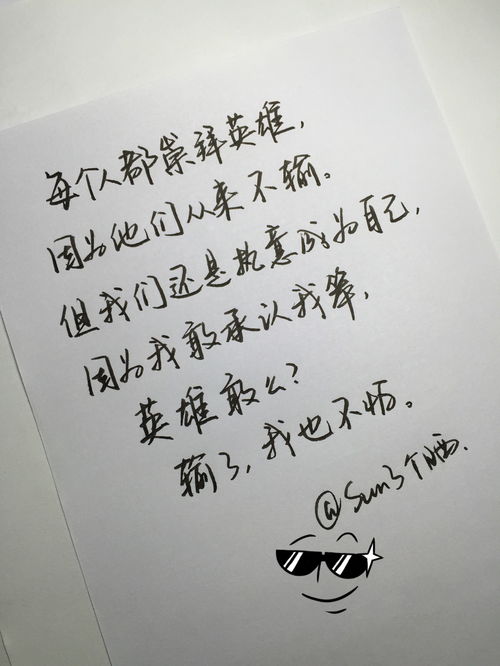 每个人都崇拜英雄，
因为他们从来不输。
但我们还是执意成为自己，
因为我敢承认我笨，
英雄敢么？
输了，我也不怕。
@Sun3个晒.